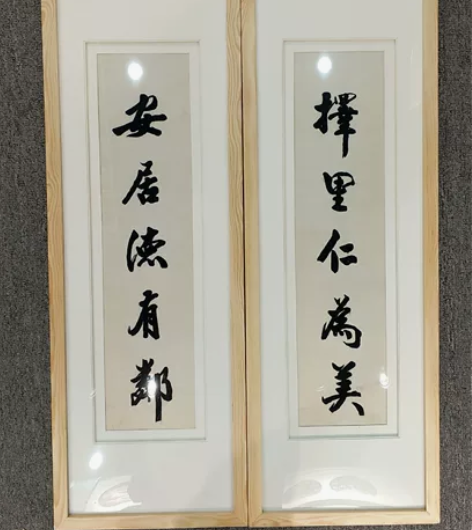 擇里仁為美
安居德有鄰